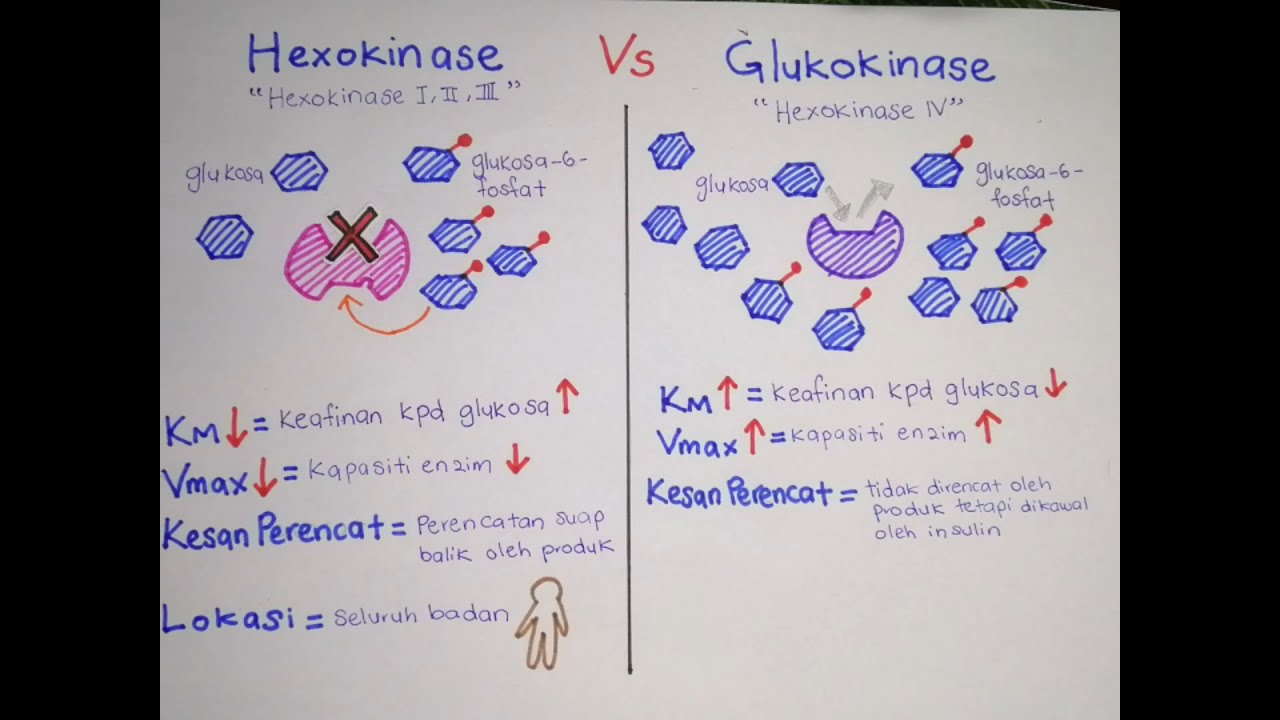 Hexokinase
Vs
Glukokinase
"Hexokinase I, II, III"
"Hexokinase IV"
glukosa
glukosa-6-
fosfat
Km ↓ = Keafinan kpd glukosa ↑
Vmax ↓ = Kapasiti enzim ↓
Kesan Perencat = Perencatan suap
balik oleh produk
Lokasi = seluruh badan
glukosa
glukosa-6-
fosfat
Km ↑ = keafinan kpd glukosa ↓
Vmax ↑ = kapasiti enzim ↑
Kesan Perencat = tidak direncat oleh
produk tetapi dikawal
oleh insulin